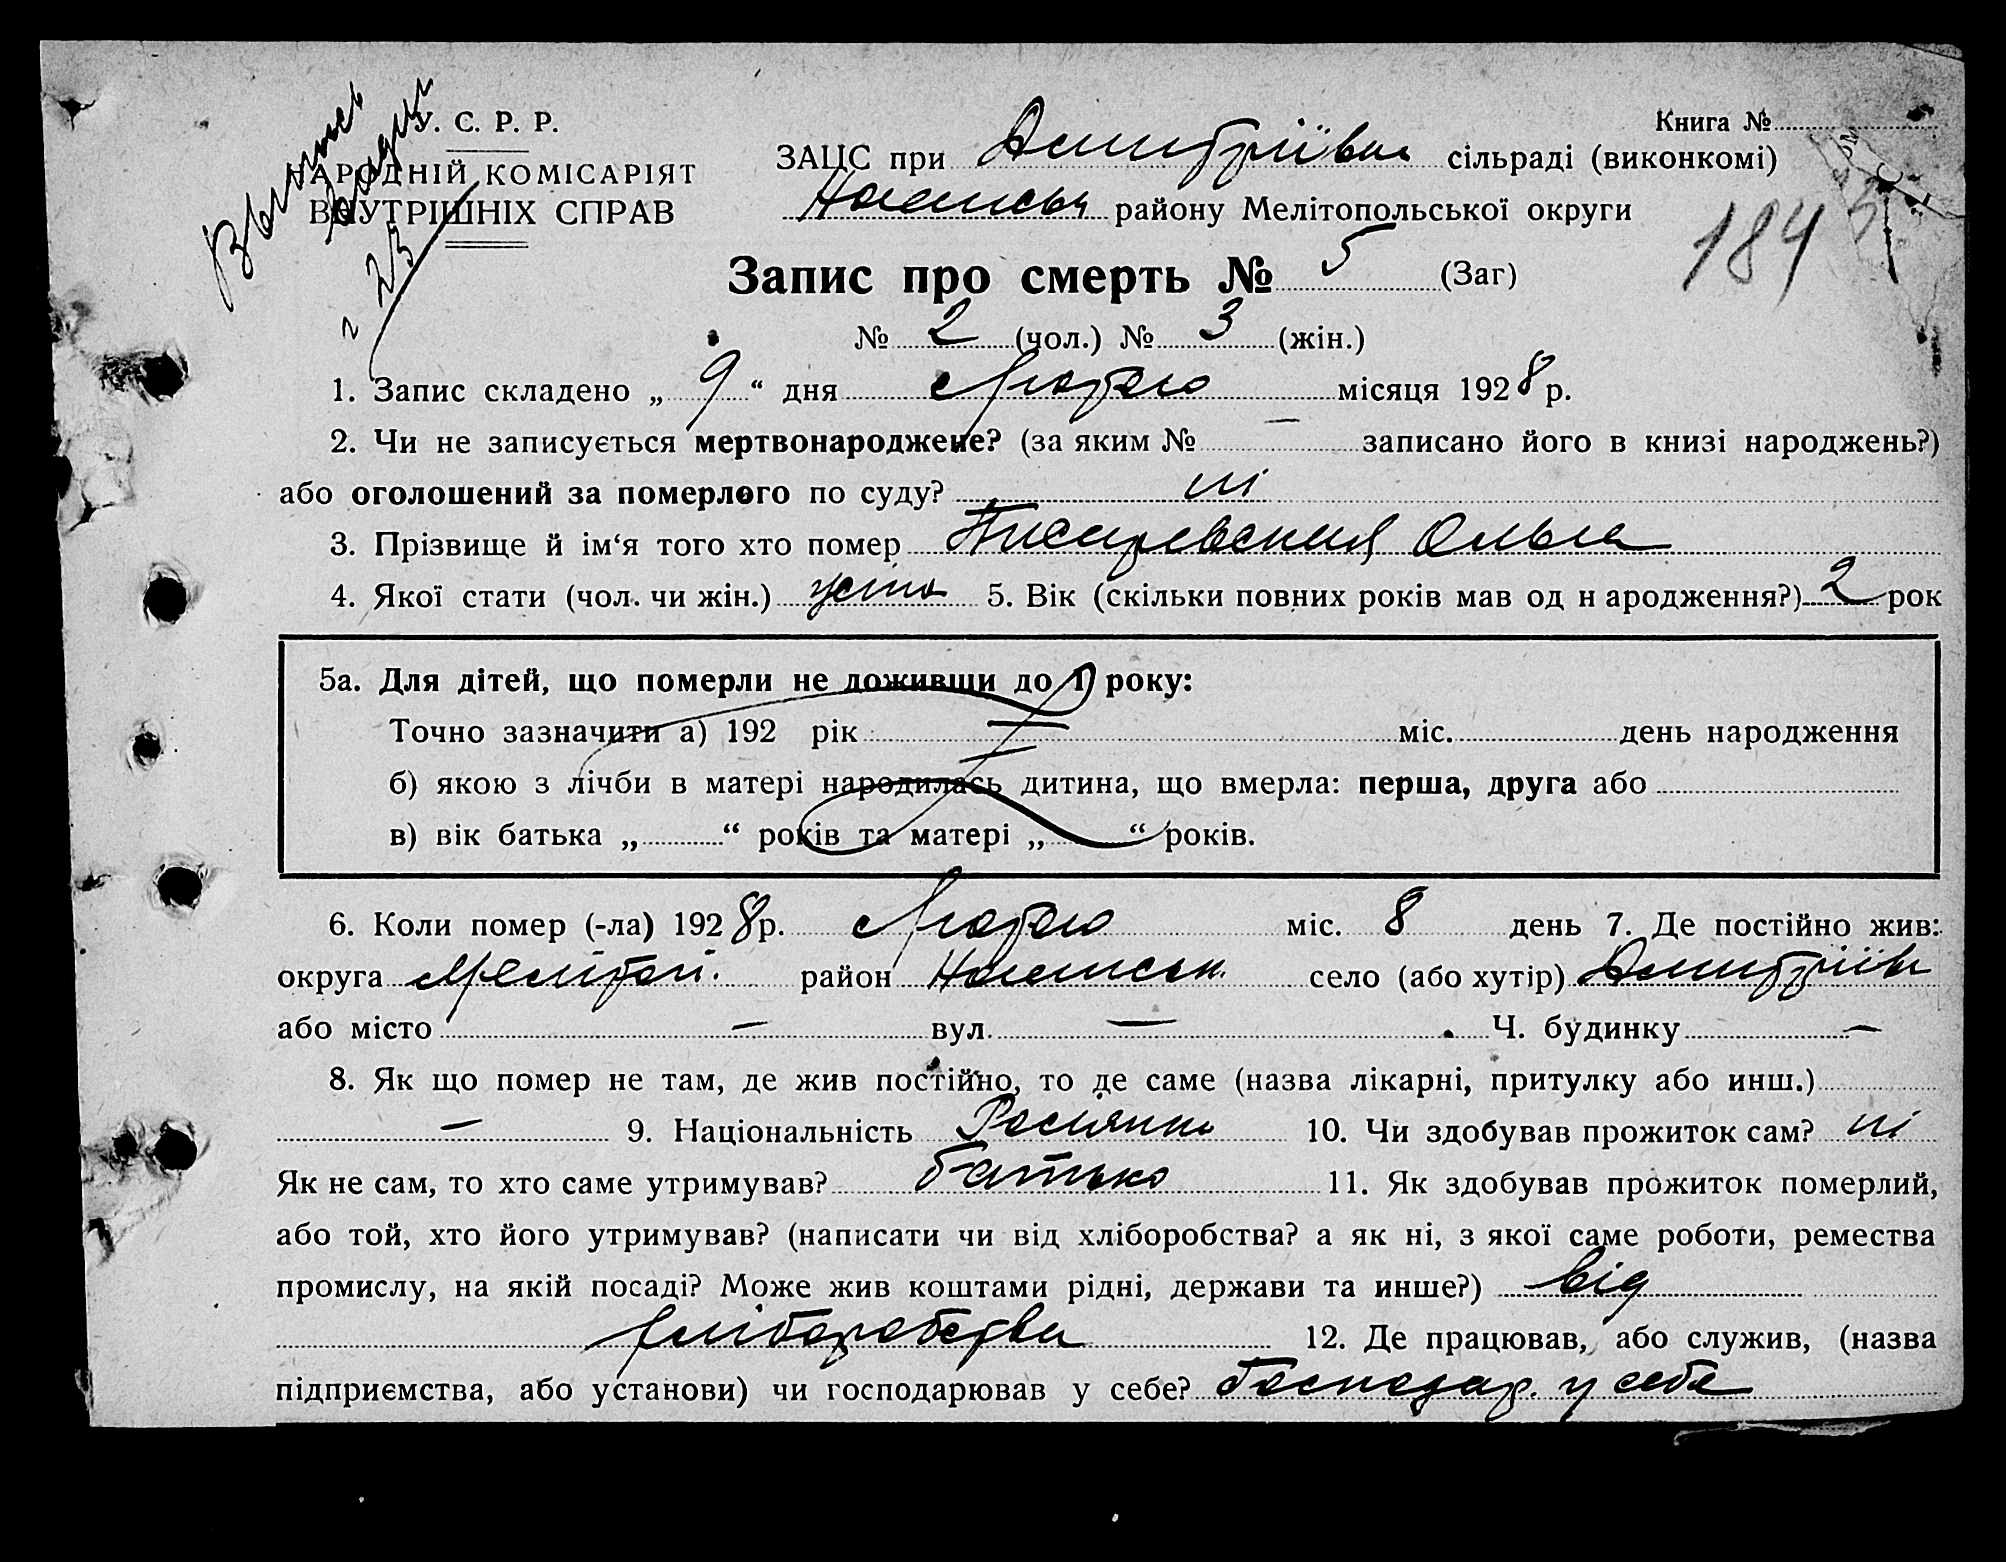 У. С. Р. Р.
НАРОДНІЙ КОМІСАРІЯТ
ВНУТРІШНІХ СПРАВ
Книга №
ЗАЦС при Дмитріївск сільраді (виконкомі)
району Мелітопольської округи
184
Запис про смерть № 5 (Заг)
№ 2 (чол.) № 3 (жін.)
1. Запис складено „ 9 “ дня Лютого місяця 1928 р.
2. Чи не записується мертвонароджене? (за яким № — записано його в книзі народжень?)
або оголошений за померлого по суду? ні
3. Прізвище й ім‘я того хто помер Писаревская Ольга
4. Якої стати (чол. чи жін.) 5. Вік (скільки повних років мав од н ародження?) 2 рок
5а. Для дітей, що померли не доживши до 1 року:
Точно зазначити а) 192 рік міс. день народження
б) якою з лічби в матері народилась дитина, що вмерла: перша, друга або
в) вік батька „ “ років та матері „ “ років.
6. Коли помер (-ла) 1928 р. Лютого міс. 8 день 7. Де постійно жив:
округа Мелітоп. район село (або хутір) Дмитріїв
або місто — вул. — Ч. будинку —
8. Як що помер не там, де жив постійно, то де саме (назва лікарні, притулку або инш.)
— 9. Національність Росіянка 10. Чи здобував прожиток сам? ні
Як не сам, то хто саме утримував? батько 11. Як здобував прожиток померлий,
або той, хто його утримував? (написати чи від хліборобства? а як ні, з якої саме роботи, ремества
промислу, на якій посаді? Може жив коштами рідні, держави та инше?) від
хліборобства 12. Де працював, або служив, (назва
підприємства, або установи) чи господарював у себе? Господар. у себе